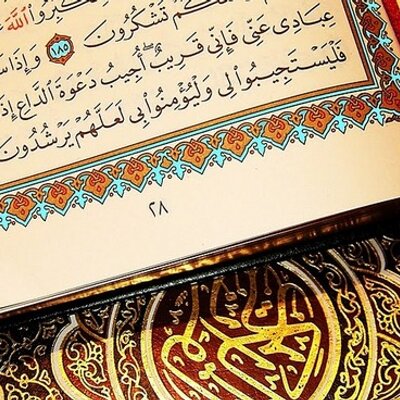 كبروا الله
كم تشكرون ١٨٥ وإذا س
عبادي عني فإني قريب أجيب دعوة الداع إذ
فليستجيبوا لي وليؤمنوا بي لعلهم يرشدون
٢٨